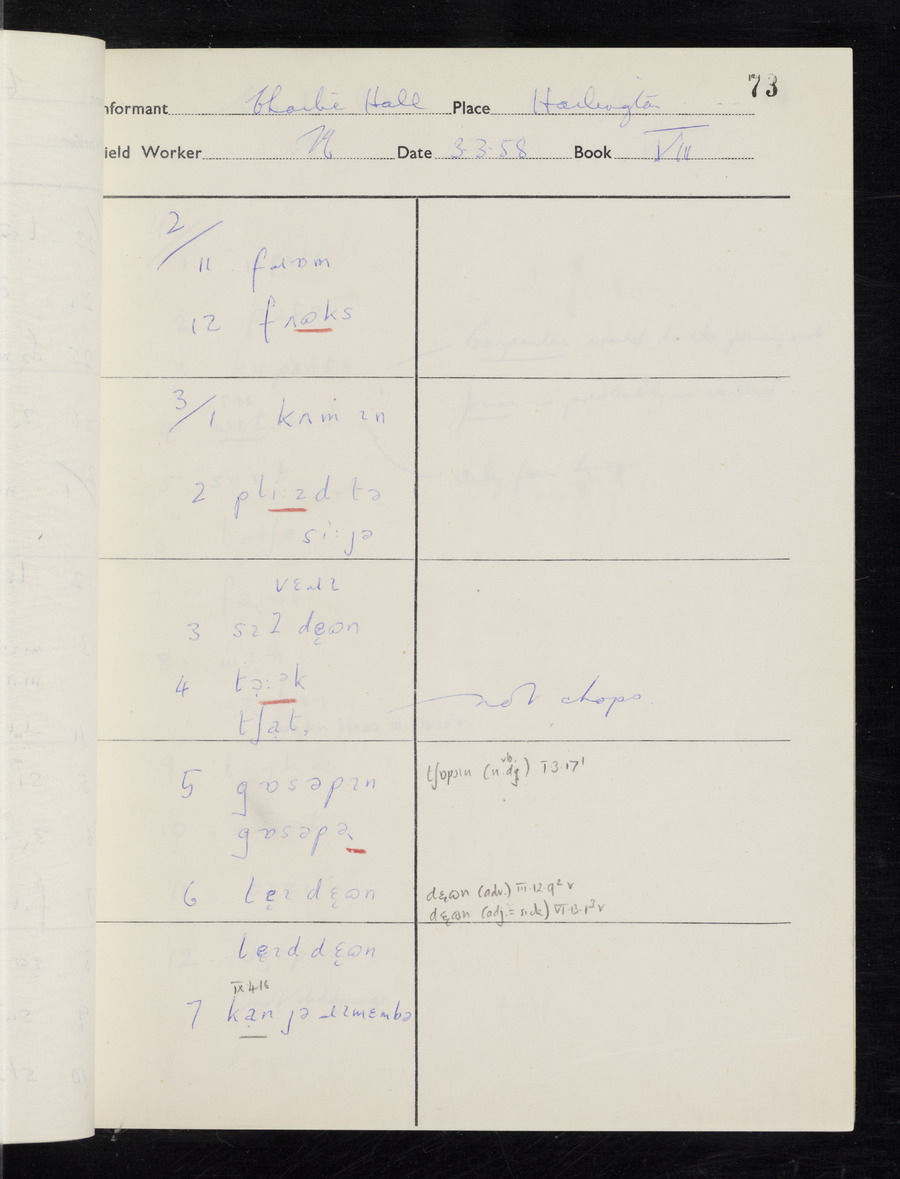 73
nformant Charlie Hall Place Harlington
ield Worker Date 3.3.58 Book VIII
2/
11 fɹɒm
12 fɹɒks
3/1 kʌmɪn
2 pliːzd tə
siːjə
vɛɹɪ
3 sɪt dɛ̜ʊn
4 tɔ̜ːək not chops
tʃa̜t,
5 gɒsəpɪn tʃɒpsɪn (n. vb. dg) I.3.17¹
gɒsəpə̜
6 lɛ̜ɪ dɛ̜ʊn dɛ̜ʊn (adv) III.12.9² v
dɛ̜ʊn (adj. = sick) VI.13.1³ v
lɛ̜ɪd dɛ̜ʊn
IX.4.16
7 ka̜n jə ɹɪmɛmbə